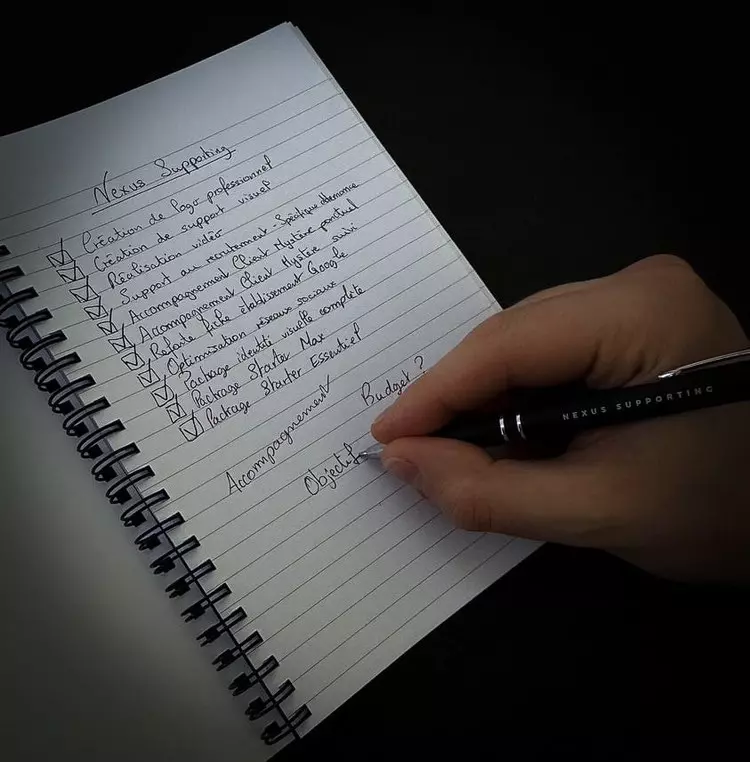 Nexus Supporting
Création de logo professionnel
Création de support visuel
Réalisation vidéo
Support au recrutement - Spécifique
Accompagnement Client Mystère ponctuel
Accompagnement Client Mystère suivi
Refonte fiche établissement Google
Optimisation réseaux sociaux
Package identité visuelle complète
Package Starter Max
Package Starter Essentiel
Accompagnement
Budget ?
Objectif
NEXUS SUPPORTING